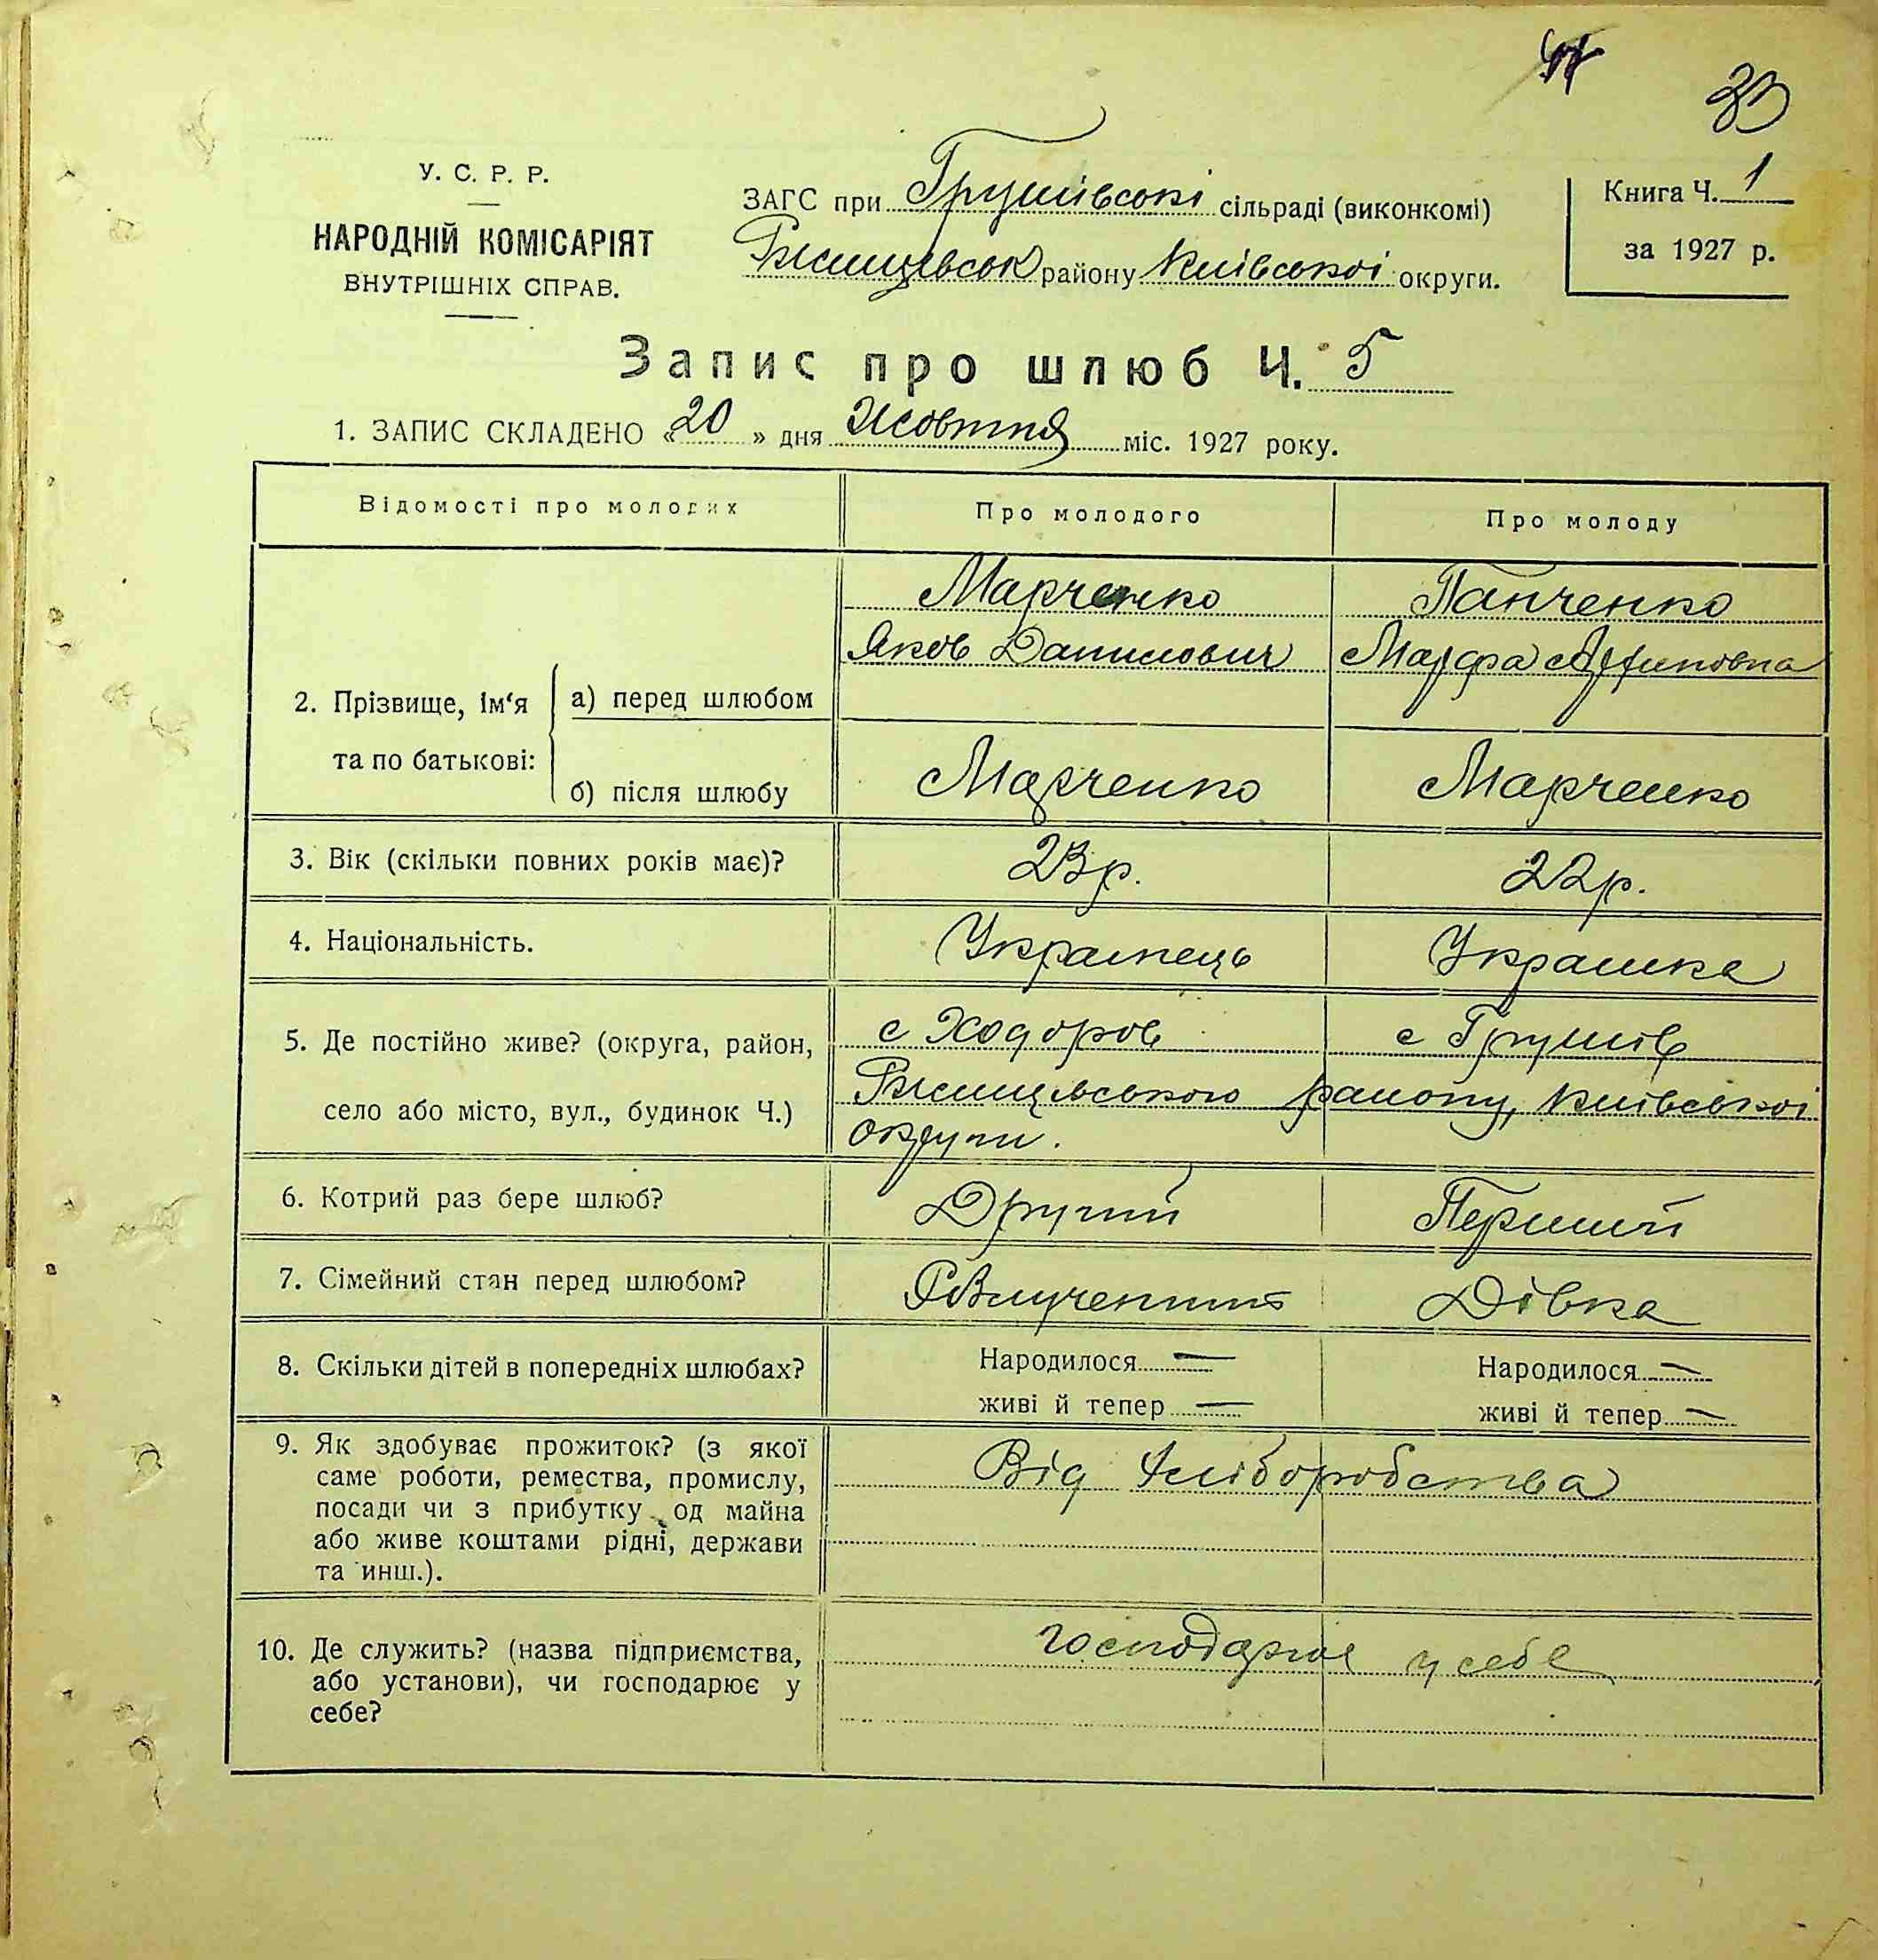 33
У. С. Р. Р.
НАРОДНІЙ КОМІСАРІЯТ
ВНУТРІШНІХ СПРАВ.
ЗАГС при Грушівські сільраді (виконкомі)
Ржищевськ району Київської округи.
Книга Ч. 1
за 1927 р.
Запис про шлюб Ч. 5
1. ЗАПИС СКЛАДЕНО «20» дня Жовтня міс. 1927 року.
Відомості про молодих
Про молодого
Про молоду
2. Прізвище, ім‘я та по батькові:
а) перед шлюбом
Марченко
Яков Данилович
Панченко
Марфа
б) після шлюбу
Марченко
Марченко
3. Вік (скільки повних років має)?
23р.
22р.
4. Національність.
Українець
Украінка
5. Де постійно живе? (округа, район,
село або місто, вул., будинок Ч.)
с Ходоров
с Грушів
Ржищівського району, Київської
округи.
6. Котрий раз бере шлюб?
Другий
Перший
7. Сімейний стан перед шлюбом?
Розлучений
Дівка
8. Скільки дітей в попередніх шлюбах?
Народилося —
живі й тепер —
Народилося —
живі й тепер —
9. Як здобуває прожиток? (з якої
саме роботи, ремества, промислу,
посади чи з прибутку од майна
або живе коштами рідні, держави
та инш.).
Від хліборобства
10. Де служить? (назва підприємства,
або установи), чи господарює у
себе?
господарює у себе